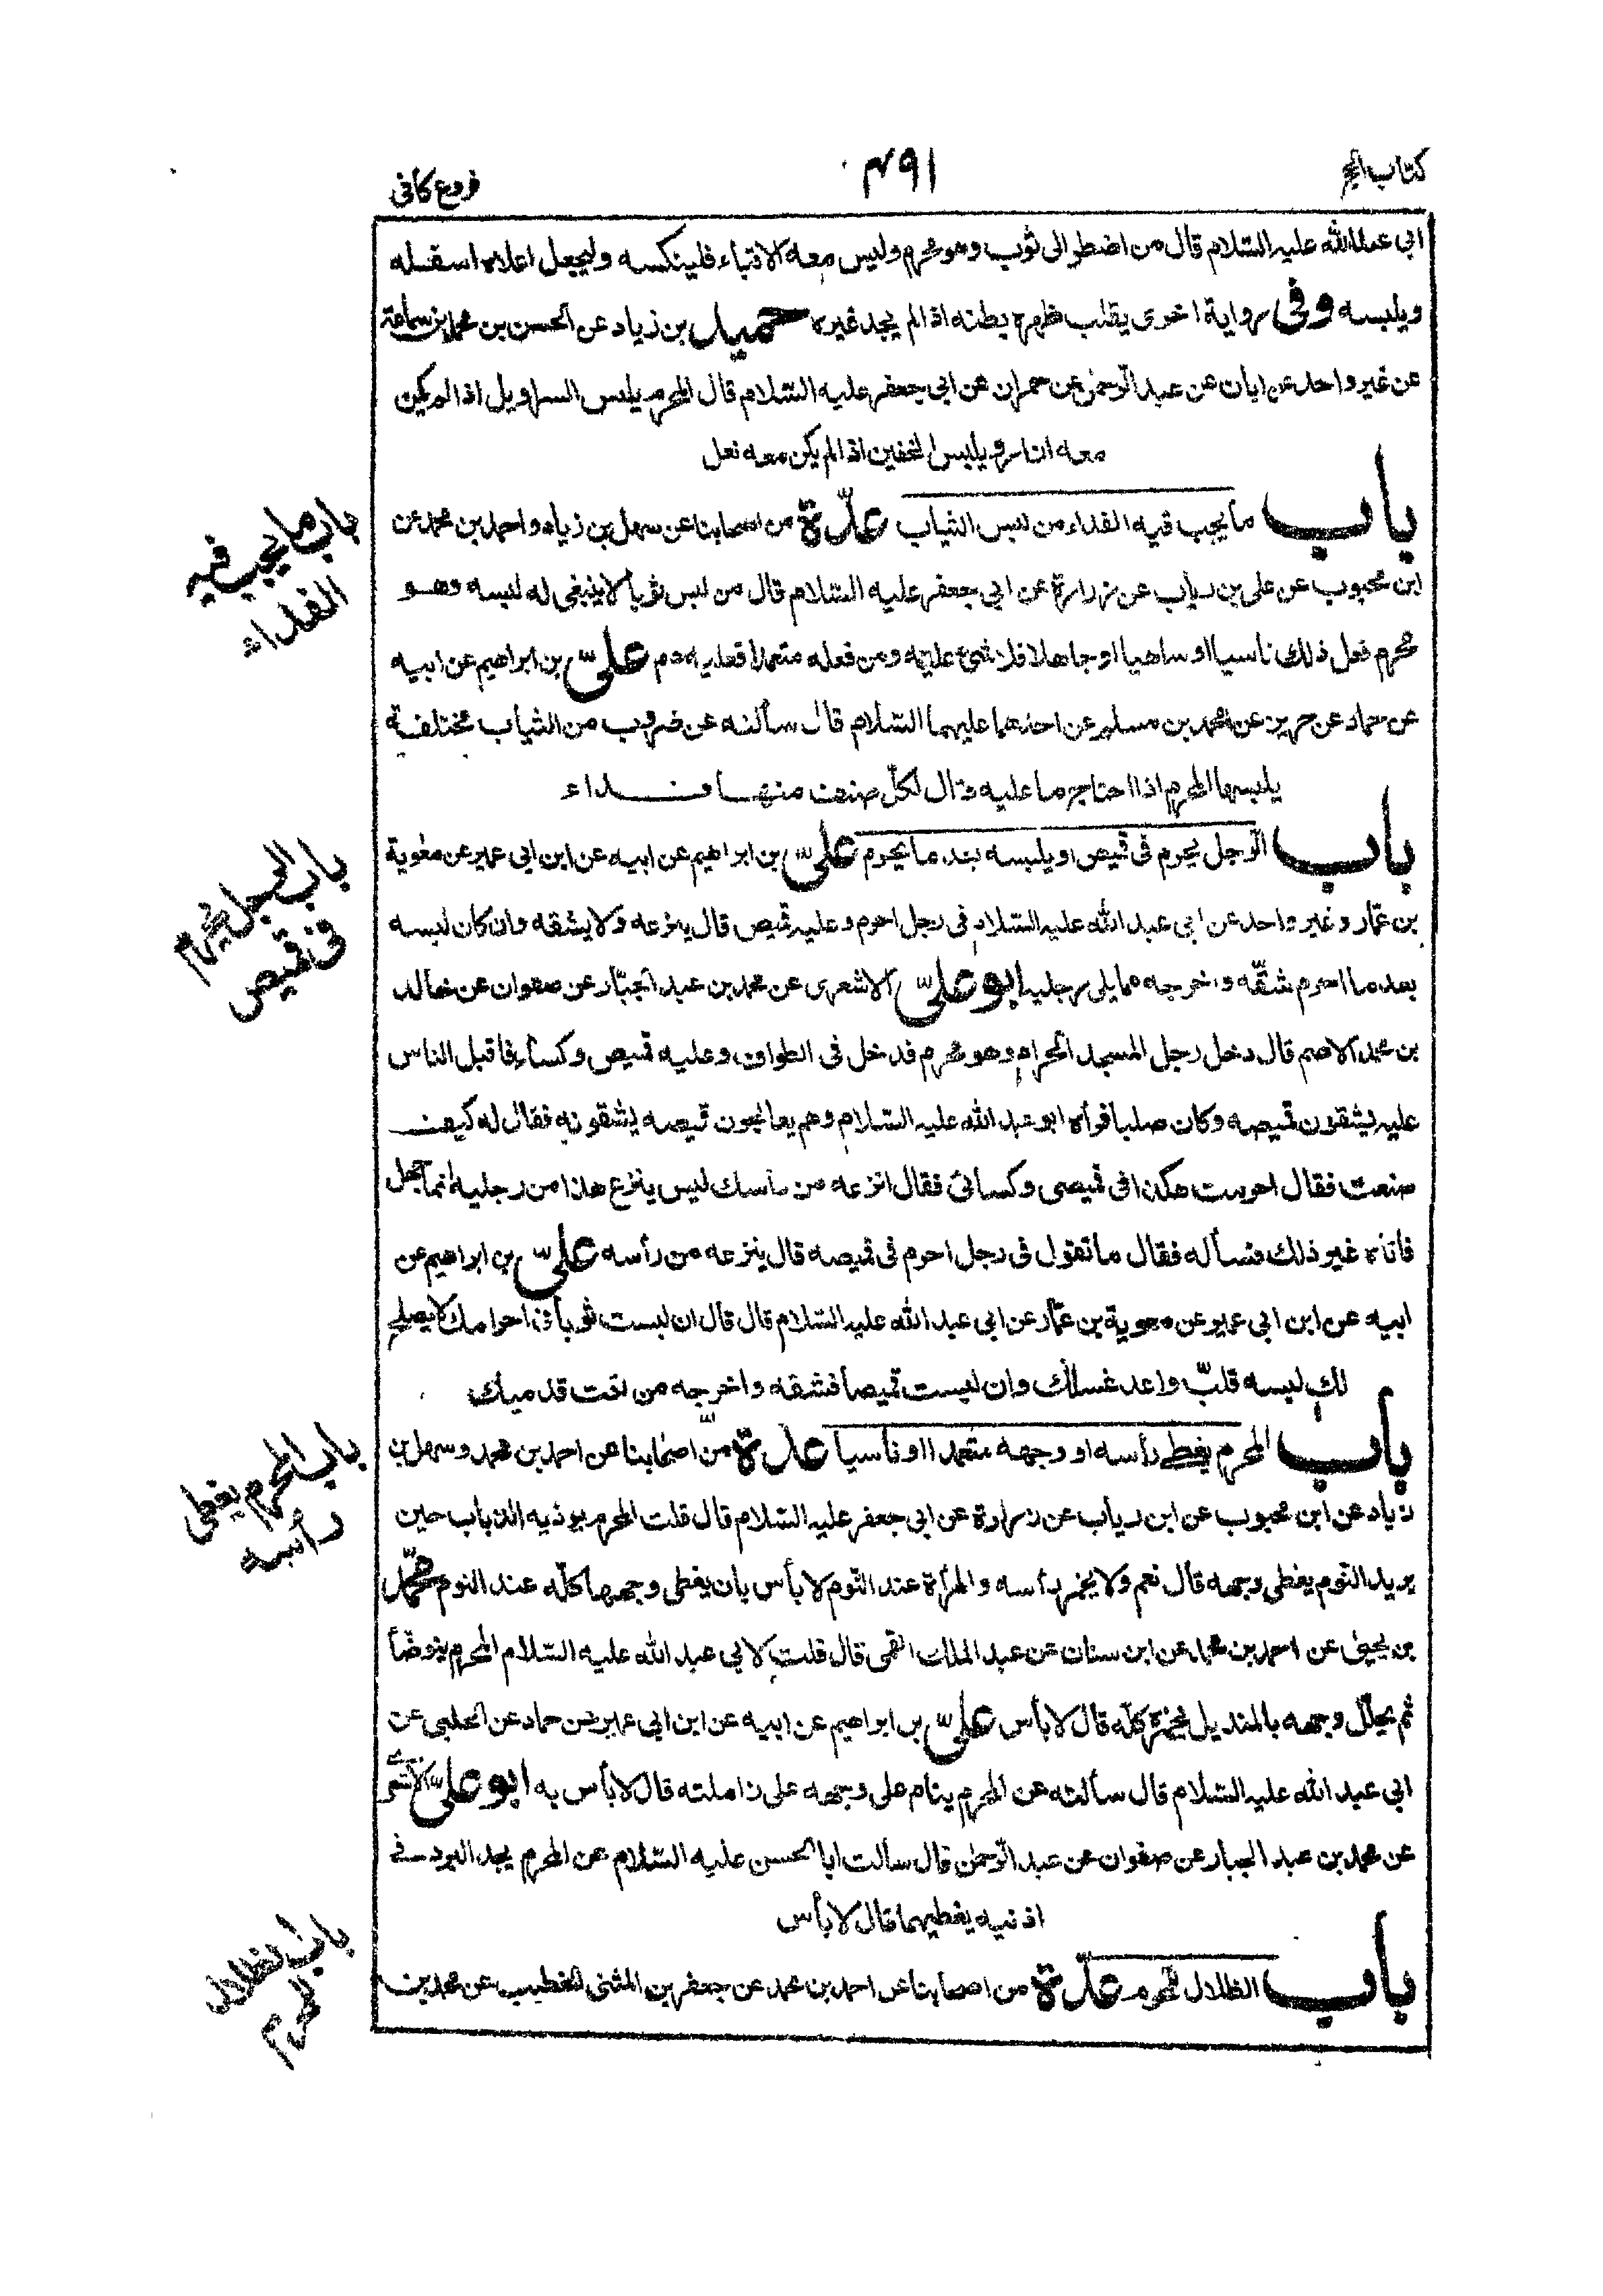 كتاب الحج
٤٩١
فروع كافى
ابي عبدالله عليه السّلام قال من اضطر الى ثوب وهو محرم وليس معه الا قباء فلينكسه وليجعل اعلاه اسفله
ويلبسه وفى رواية اخرى يقلب ظهره بطنه اذا لم يجد غيره حميد بن زياد عن الحسن بن محمد بن سماعة
عن غير واحد عن ابان عن عبد الرّحمن عن حمران عن ابي جعفر عليه السّلام قال المحرم يلبس السراويل اذا لم يكن
معه ازار ويلبس الخفين اذا لم يكن معه نعل
باب ما يجب فيه الفداء من لبس الثياب عدّة من اصحابنا عن سهل بن زياد واحمد بن محمد عن
ابن محبوب عن على بن رياب عن زرارة عن ابي جعفر عليه السّلام قال من لبس ثوبا لا ينبغى له لبسه وهو
محرم فعل ذلك ناسيا او ساهيا او جاهلا فلا شئ عليه ومن فعله متعمدا فعليه دم علىّ بن ابراهيم عن ابيه
عن حماد عن حريز عن محمد بن مسلم عن احدهما عليهما السّلام قال سألته عن ضروب من الثياب مختلفة
يلبسها المحرم اذا احتاج ما عليه قال لكلّ صنف منها فداء
باب الرّجل يحرم فى قميص او يلبسه بعد ما يحرم علىّ بن ابراهيم عن ابيه عن ابن ابي عمير عن معوية
بن عمّار وغير واحد عن ابي عبد الله عليه السّلام فى رجل احرم وعليه قميص قال ينزعه ولا يشقه وان كان لبسه
بعد ما احرم شقّه واخرجه مما يلى رجليه ابو علىّ الاشعرى عن محمد بن عبد الجبّار عن صفوان عن خالد
بن محمد الاصم قال دخل رجل المسجد الحرام وهو محرم فدخل فى الطواف وعليه قميص وكساء فاقبل الناس
عليه يشقون قميصه وكان صلبا فرأه ابو عبد الله عليه السّلام وهم يعالجون قميصه يشقونه فقال له كيف
صنعت فقال احرمت هكذا فى قميصى وكسائى فقال انزعه من رأسك ليس ينزع هذا من رجليه انما جهل
فأتاه غير ذلك فسأله فقال ما تقول فى رجل احرم فى قميصه قال ينزعه من رأسه علىّ بن ابراهيم عن
ابيه عن ابن ابي عمير عن معوية بن عمّار عن ابي عبد الله عليه السّلام قال قال ان لبست ثوبا فى احرامك لا يصلح
لك لبسه فلبّ واعد غسلك وان لبست قميصا فشقه واخرجه من تحت قدميك
باب المحرم يغطى رأسه او وجهه متعمدا او ناسيا عدّة من اصحابنا عن احمد بن محمد وسهل بن
زياد عن ابن محبوب عن ابن رياب عن زرارة عن ابي جعفر عليه السّلام قال قلت المحرم يوذيه الذباب حين
يريد النّوم يغطى وجهه قال نعم ولا يخمر رأسه والمرأة عند النّوم لا بأس بان يغطى وجهها كلّه عند النوم محمّد
بن يحيى عن احمد بن محمد عن ابن سنان عن عبد الملك القمى قال قلت لابي عبد الله عليه السّلام المحرم يتوضّأ
ثم يجلّل وجهه بالمنديل يخمره كلّه قال لا بأس علىّ بن ابراهيم عن ابيه عن ابن ابي عمير عن حماد عن الحلبى عن
ابي عبد الله عليه السّلام قال سألته عن المحرم ينام على وجهه على زاملته قال لا بأس به ابو علىّ الاشعرى
عن محمد بن عبد الجبار عن صفوان عن عبد الرّحمن قال سألت ابا الحسن عليه السّلام عن المحرم يجد البرد فى
اذنيه يغطيهما قال لا بأس
باب الظلال للمحرم عدّة من اصحابنا عن احمد بن محمد عن جعفر بن المثنى الخطيب عن محمد بن
باب ما يجب فيه
الفداء
باب الرجل يحرم
فى قميص
باب المحرم يغطى
رأسه
باب الظلال
للمحرم